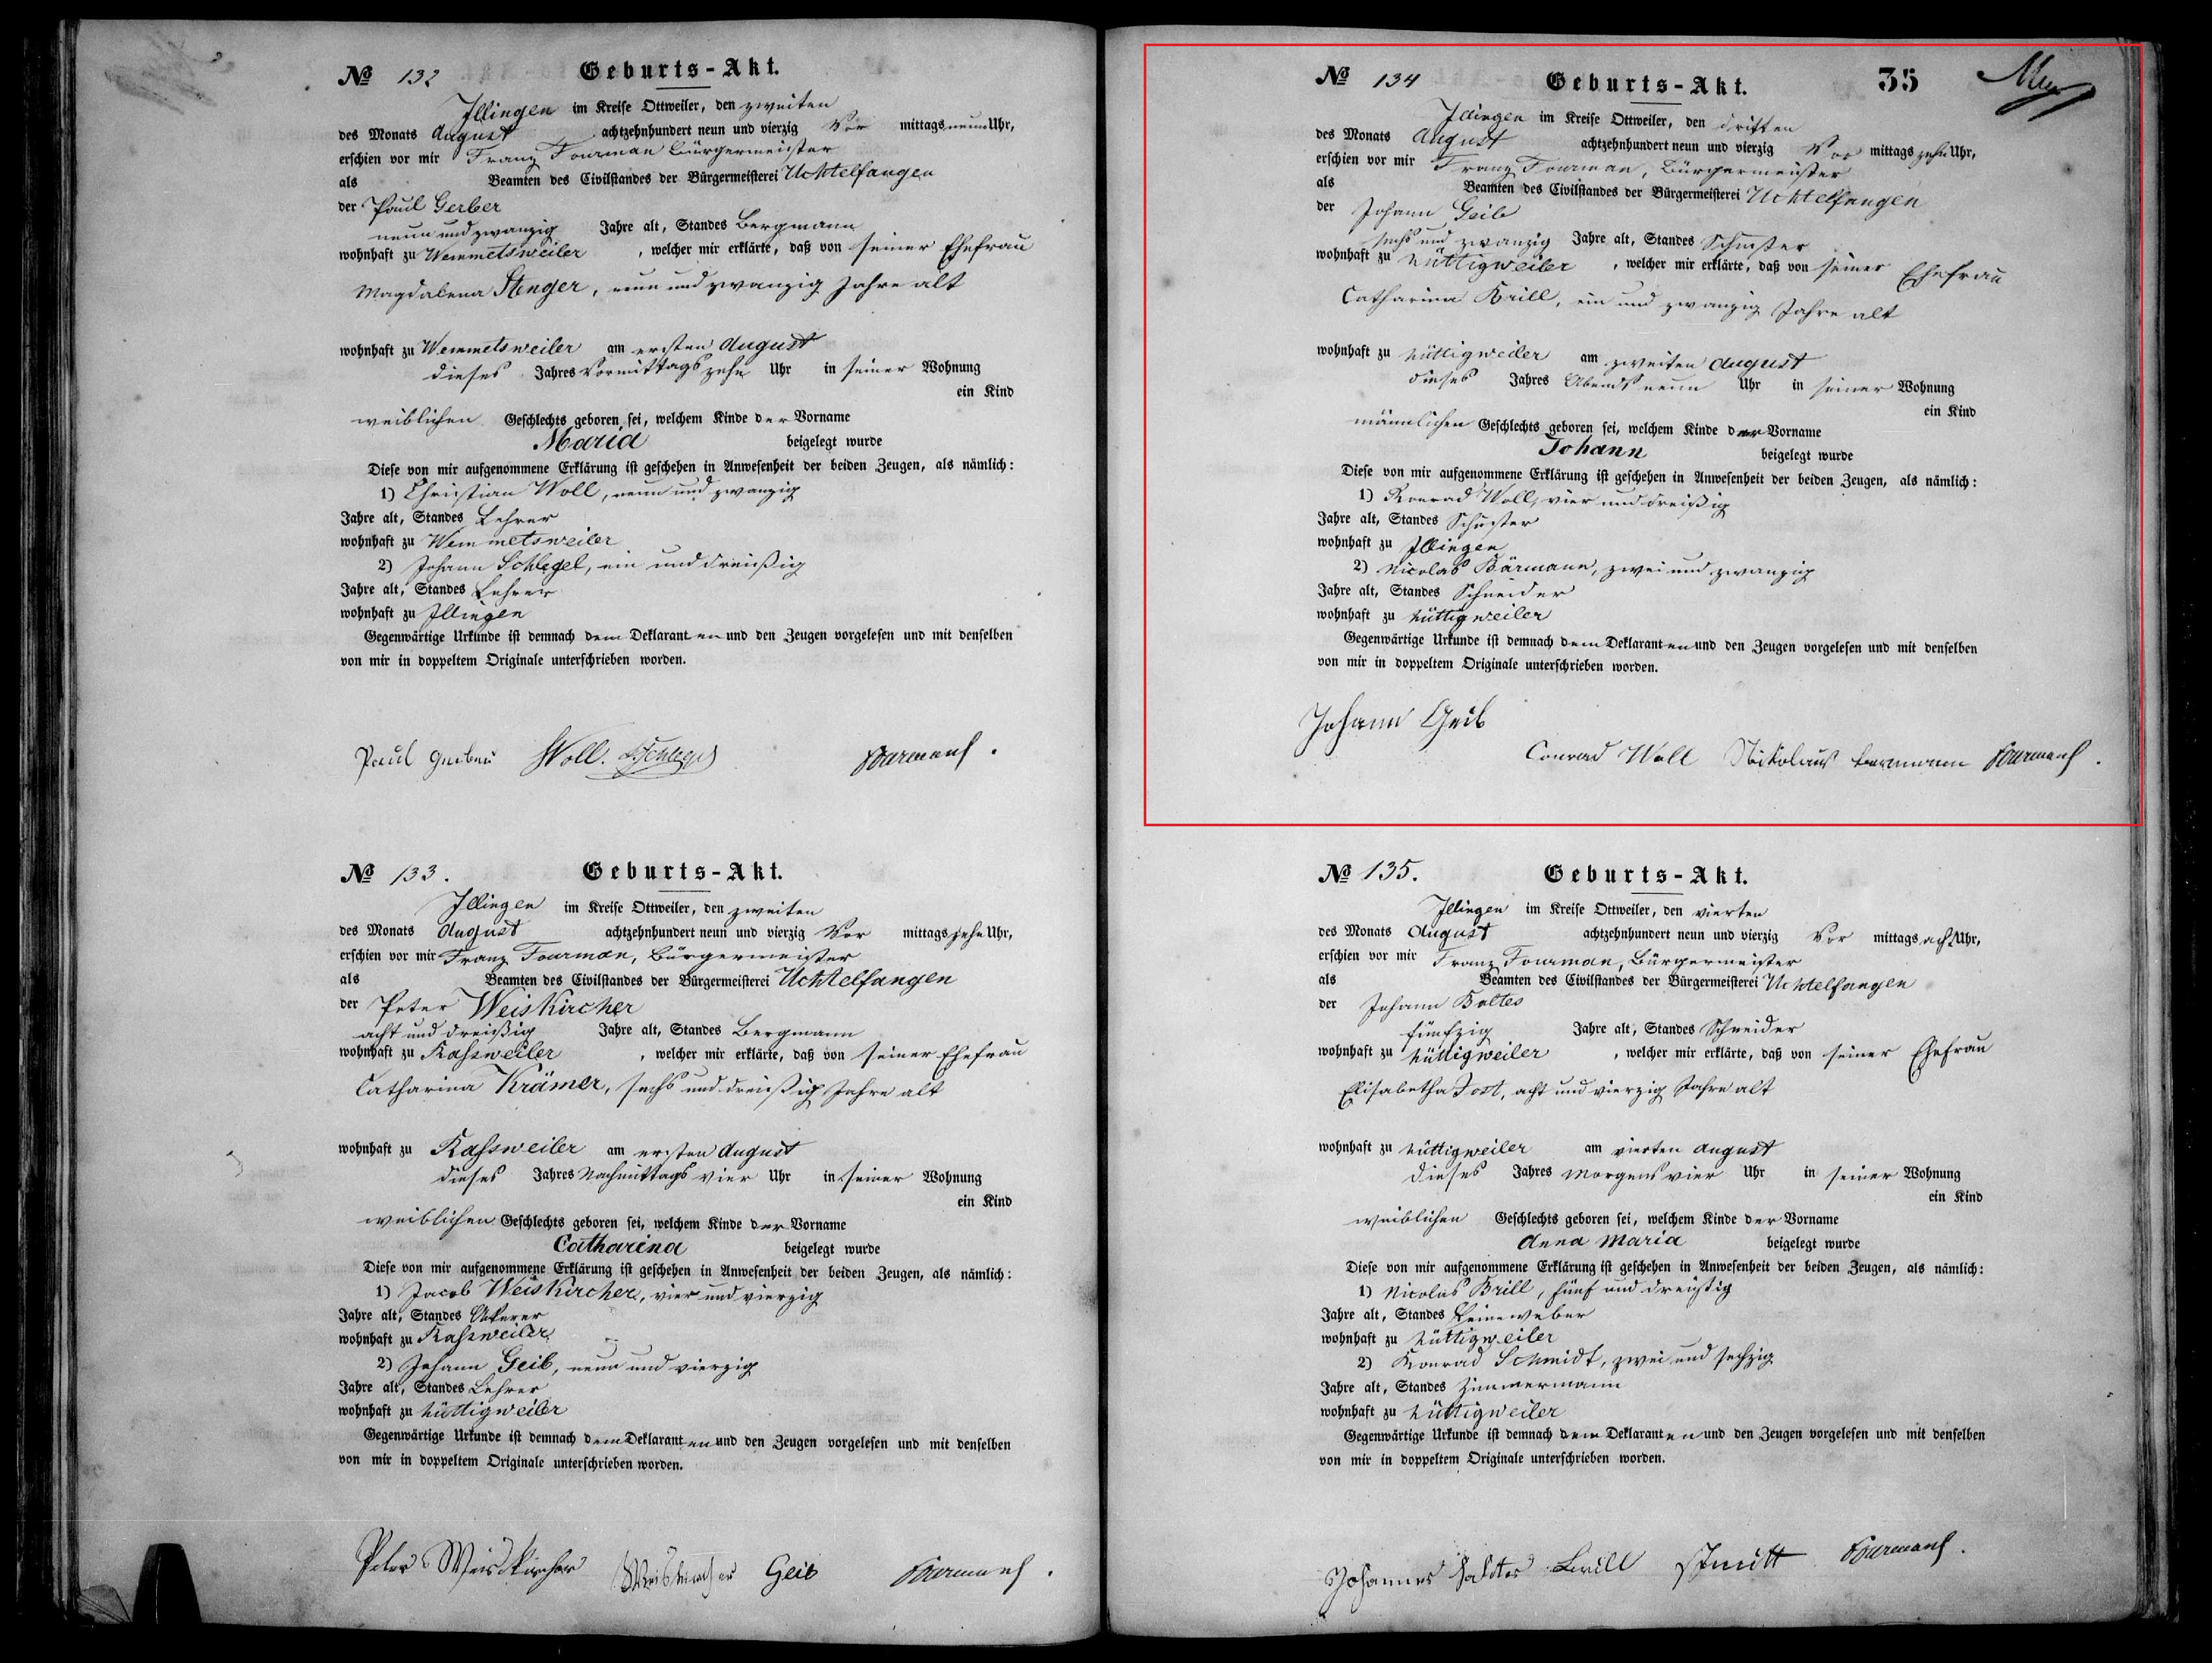 № 132 Geburts-Akt.
Illingen im Kreise Ottweiler, den zweiten
des Monats August achtzehnhundert neun und vierzig Vor mittags neun Uhr,
erschien vor mir Franz Fourman Bürgermeister
als Beamten des Civilstandes der Bürgermeisterei Uchtelfangen
der Paul Gerber
neun und zwanzig Jahre alt, Standes Bergmann
wohnhaft zu Wemmetsweiler, welcher mir erklärte, daß von seiner Ehefrau
Magdalena Stenger, neun und zwanzig Jahre alt
wohnhaft zu Wemmetsweiler am ersten August
dieses Jahres Vormittags zehn Uhr in seiner Wohnung
ein Kind
weiblichen Geschlechts geboren sei, welchem Kinde der Vorname
Maria beigelegt wurde
Diese von mir aufgenommene Erklärung ist geschehen in Anwesenheit der beiden Zeugen, als nämlich:
1) Christian Woll, neun und zwanzig
Jahre alt, Standes Lehrer
wohnhaft zu Wemmetsweiler
2) Johann Schlegel, ein und dreißig
Jahre alt, Standes Lehrer
wohnhaft zu Illingen
Gegenwärtige Urkunde ist demnach dem Deklaranten und den Zeugen vorgelesen und mit denselben
von mir in doppeltem Originale unterschrieben worden.
Paul Gerber Woll. Schlegel Fourman
№ 133. Geburts-Akt.
Illingen im Kreise Ottweiler, den zweiten
des Monats August achtzehnhundert neun und vierzig Vor mittags zehn Uhr,
erschien vor mir Franz Fourman, Bürgermeister
als Beamten des Civilstandes der Bürgermeisterei Uchtelfangen
der Peter Weiskircher
acht und dreißig Jahre alt, Standes Bergmann
wohnhaft zu Raßweiler, welcher mir erklärte, daß von seiner Ehefrau
Catharina Krämer, sechs und dreißig Jahre alt
wohnhaft zu Raßweiler am ersten August
dieses Jahres Nachmittags vier Uhr in seiner Wohnung
ein Kind
weiblichen Geschlechts geboren sei, welchem Kinde der Vorname
Catharina beigelegt wurde
Diese von mir aufgenommene Erklärung ist geschehen in Anwesenheit der beiden Zeugen, als nämlich:
1) Jacob Weiskircher, vier und vierzig
Jahre alt, Standes Akerer
wohnhaft zu Raßweiler
2) Johann Geib, neun und vierzig
Jahre alt, Standes Lehrer
wohnhaft zu Hüttigweiler
Gegenwärtige Urkunde ist demnach dem Deklaranten und den Zeugen vorgelesen und mit denselben
von mir in doppeltem Originale unterschrieben worden.
Peter Weiskircher Weiskircher Geib Fourman
№ 134 Geburts-Akt. 35
Illingen im Kreise Ottweiler, den dritten
des Monats August achtzehnhundert neun und vierzig Vor mittags zehn Uhr,
erschien vor mir Franz Fourman, Bürgermeister
als Beamten des Civilstandes der Bürgermeisterei Uchtelfangen
der Johann Geib
sechs und zwanzig Jahre alt, Standes Schuster
wohnhaft zu Hüttigweiler, welcher mir erklärte, daß von seiner Ehefrau
Catharina Brill, ein und zwanzig Jahre alt
wohnhaft zu Hüttigweiler am zweiten August
dieses Jahres Abends neun Uhr in seiner Wohnung
ein Kind
männlichen Geschlechts geboren sei, welchem Kinde der Vorname
Johann beigelegt wurde
Diese von mir aufgenommene Erklärung ist geschehen in Anwesenheit der beiden Zeugen, als nämlich:
1) Konrad Woll, vier und dreißig
Jahre alt, Standes Schuster
wohnhaft zu Illingen
2) Nicolas Bärmann, zwei und zwanzig
Jahre alt, Standes Schneider
wohnhaft zu Hüttigweiler
Gegenwärtige Urkunde ist demnach dem Deklaranten und den Zeugen vorgelesen und mit denselben
von mir in doppeltem Originale unterschrieben worden.
Johann Geib
Conrad Woll Nikolaus Bermann Fourman
№ 135. Geburts-Akt.
Illingen im Kreise Ottweiler, den vierten
des Monats August achtzehnhundert neun und vierzig Vor mittags acht Uhr,
erschien vor mir Franz Fourman, Bürgermeister
als Beamten des Civilstandes der Bürgermeisterei Uchtelfangen
der Johann Baltes
fünfzig Jahre alt, Standes Schneider
wohnhaft zu Hüttigweiler, welcher mir erklärte, daß von seiner Ehefrau
Elisabetha Jost, acht und vierzig Jahre alt
wohnhaft zu Hüttigweiler am vierten August
dieses Jahres Morgens vier Uhr in seiner Wohnung
ein Kind
weiblichen Geschlechts geboren sei, welchem Kinde der Vorname
Anna Maria beigelegt wurde
Diese von mir aufgenommene Erklärung ist geschehen in Anwesenheit der beiden Zeugen, als nämlich:
1) Nicolas Brill, fünf und dreißig
Jahre alt, Standes Leineweber
wohnhaft zu Hüttigweiler
2) Konrad Schmidt, zwei und sechzig
Jahre alt, Standes Zimmermann
wohnhaft zu Hüttigweiler
Gegenwärtige Urkunde ist demnach dem Deklaranten und den Zeugen vorgelesen und mit denselben
von mir in doppeltem Originale unterschrieben worden.
Johannes Baldes Brill Schmitt Fourman